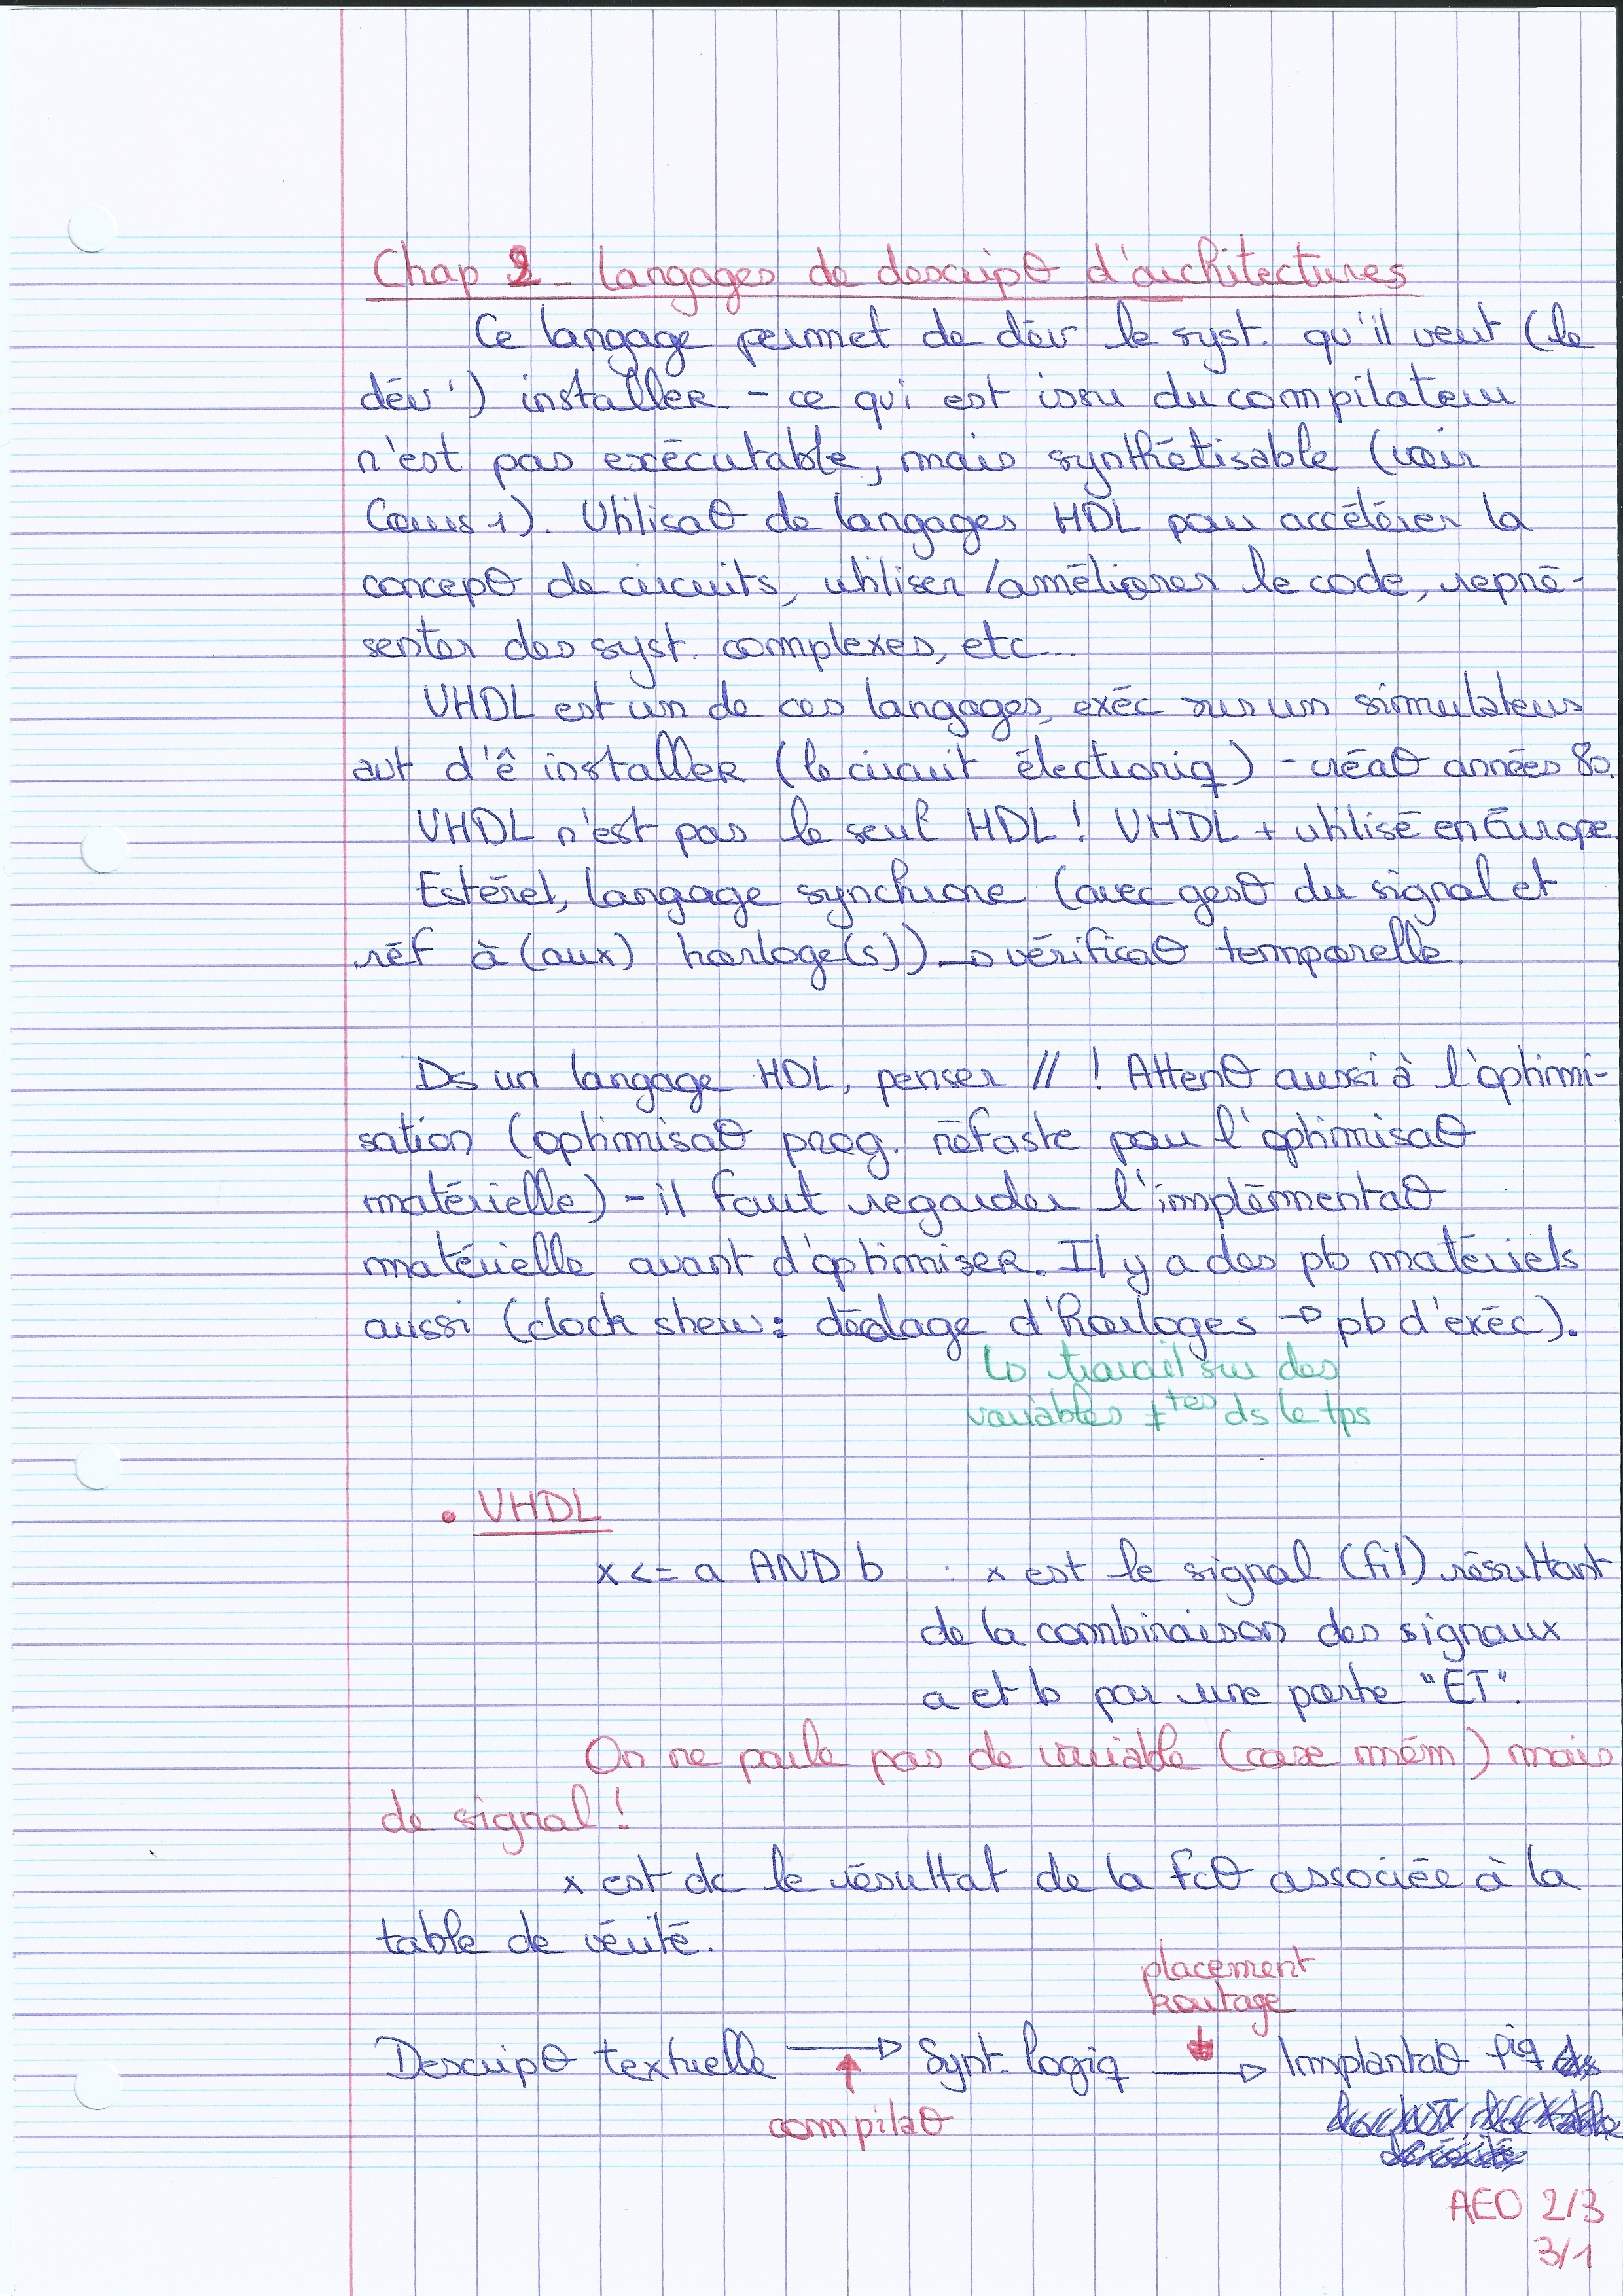 Chap 2 - Langages de descripθ d'architectures
Ce langage permet de dév le syst. qu'il veut (le
dév') installer - ce qui est issu du compilateur
n'est pas exécutable, mais synthétisable (voir
Cours 1). Utilisaθ de langages HDL pour accélérer la
concepθ de circuits, utiliser / améliorer le code, repré-
senter des syst. complexes, etc...
VHDL est un de ces langages, exéc sur un simulateur
avt d'ê installer (le circuit électroniq) - créaθ années 80.
VHDL n'est pas le seul HDL! VHDL + utilisé en Europe.
Estérel, langage synchrone (avec gesθ du signal et
réf à (aux) horloge(s)) → vérificaθ temporelle.
Ds un langage HDL, penser // ! Attenθ aussi à l'optimi-
sation (optimisaθ prog. néfaste pour l'optimisaθ
matérielle) - il faut regarder l'implémentaθ
matérielle avant d'optimiser. Il y a des pb matériels
aussi (clock shew: décalage d'horloges → pb d'exéc).
↳ travail sur des
variables ≠tes ds le tps
• VHDL
x <= a AND b : x est le signal (fil) résultant
de la combinaison des signaux
a et b par une porte "ET".
On ne parle pas de variable (case mém) mais
de signal!
x est dc le résultat de la fcθ associée à la
table de vérité.
placement
routage
Descripθ textuelle → Synt. logiq → Implantaθ
compilaθ
AEO 2/3
3/1